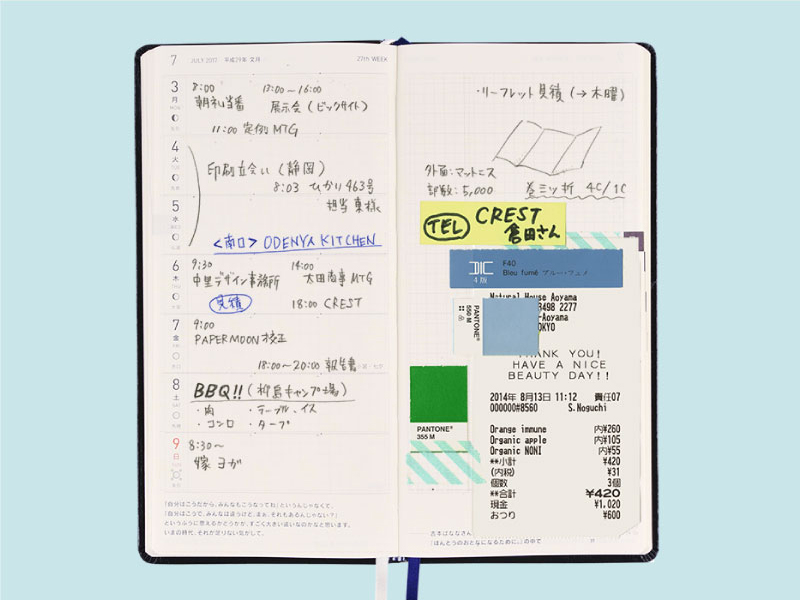 7 JULY 2017 平成29年 文月 27th WEEK
3
月
8:00
朝礼当番
13:00～16:00
展示会（ビックサイト）
11:00 定例MTG
4
火
印刷立会い（静岡）
8:03 ひかり463号
担当 東様
5
水
<南口> ODENYA KITCHEN
6
木
9:30
中里デザイン事務所
14:00
太田商事MTG
見積
18:00 CREST
7
金
9:00
PAPERMOON 校正
18:00～20:00 報告書
8
土
BBQ!!（柳島キャンプ場）
・肉
・テーブル、イス
・コンロ
・タープ
9
日
8:30～
嫁 ヨガ
「自分はこうだから、みんなもこうなってね」というんじゃなくて、
「自分はこうで、みんなは違うけど、まぁ、それもあるんじゃない？」
というふうに思えるかどうかが、すごく大きい違いなのかなと思います。
いまの時代、それが足りない気がして。
・リーフレット見積（→木曜）
外面：マットニス
部数：5,000
巻三ツ折 4C/1C
TEL
CREST
倉田さん
DIC
4版
F40
Bleu fumé ブルー・フュメ
Natural House Aoyama
3498 2277
-Aoyama
TOKYO
PANTONE®
550 M
THANK YOU!
HAVE A NICE
BEAUTY DAY!!
2014年 8月13日 11:12 責任07
000000#8560 S.Noguchi
Orange immune 内¥260
Organic apple 内¥105
Organic NONI 内¥55
**小計 ¥420
(内税) ¥31
個数 3個
**合計 ¥420
現金 ¥1,020
おつり ¥600
PANTONE®
355 M
吉本ばななさん
『ほんとうのおとなになるために。』の中で